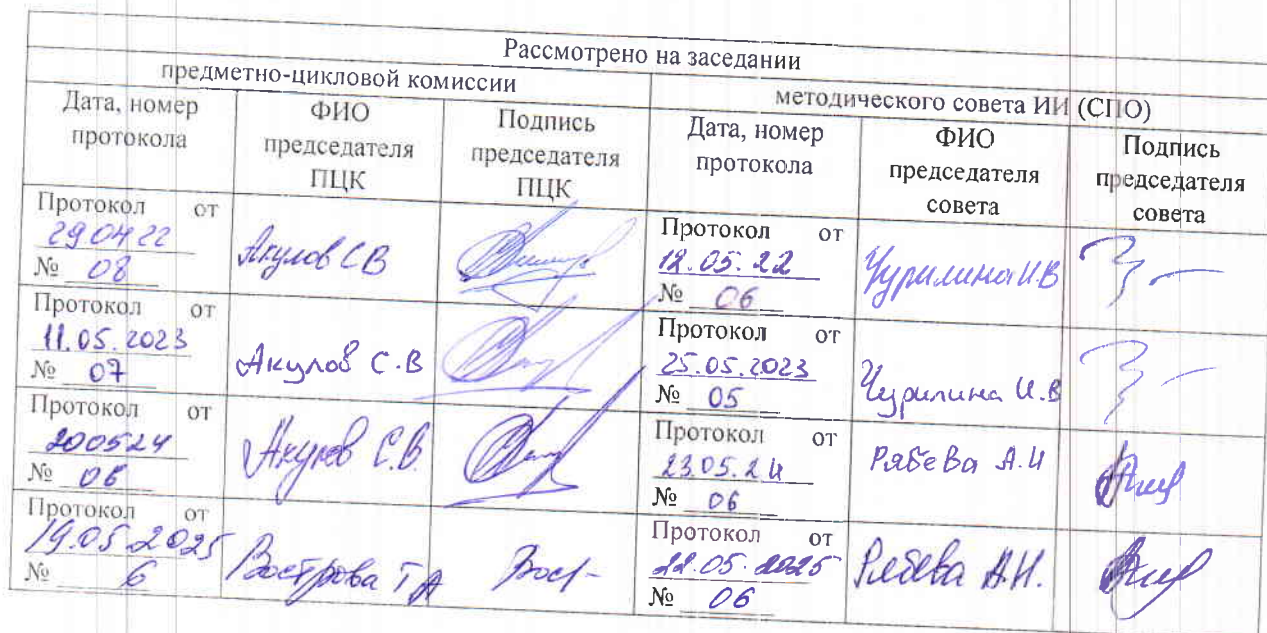 Рассмотрено на заседании
предметно-цикловой комиссии
методического совета ИИ (СПО)
Дата, номер протокола
ФИО председателя ПЦК
Подпись председателя ПЦК
Дата, номер протокола
ФИО председателя совета
Подпись председателя совета
Протокол от
29.04.22
№ 08
Акулов С В
Протокол от
12.05.22
№ 06
Чурилина И.В
Протокол от
11.05.2023
№ 07
Акулов С.В
Протокол от
25.05.2023
№ 05
Чурилина И.В
Протокол от
200524
№ 06
Акулов С.В.
Протокол от
23.05.24
№ 06
Рябева А.Н
Протокол от
19.05.2025
№ 6
Вострова Т А
Протокол от
22.05.2025
№ 06
Рябева А.Н.